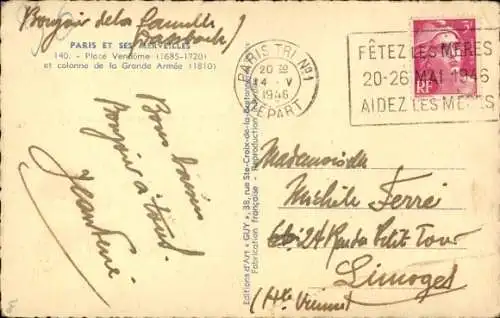 Bonjour de la famille
PARIS ET SES MERVEILLES
140. - Place Vendôme (1685-1720)
et colonne de la Grande Armée (1810)
Bons baisers
Bonjour à tous.
Editions d'Art « GUY », 38, rue Ste-Croix-de-la-Bretonnerie
Fabrication française - Reproduction
PARIS TRI N°1
20 30
4 - V
1946
DEPART
FÊTEZ LES MÈRES
20-26 MAI 1946
AIDEZ LES MÈRES
RF
Mademoiselle
Michèle Ferré
24 Rue du Petit Tour
Limoges
(Hte Vienne)